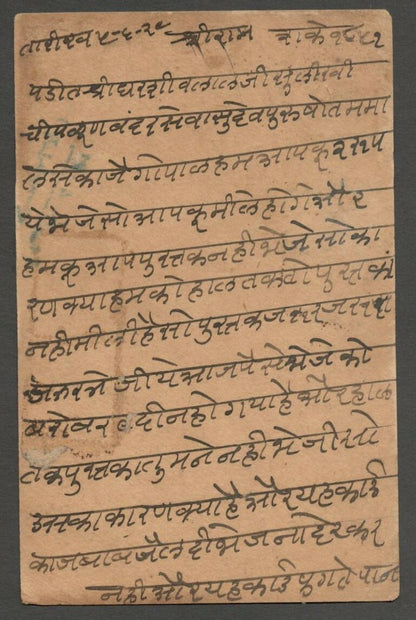 तारीख ५-६-२९ श्रीराम शके १८५१
पंडीत श्रीधर शीवलालजी मुंबई
बंदर से वासुदेव पुरुषोतम मा
लेसे का जैगोपाल हम आपकू २ रुप
ये भेजे सो आपकू मीले होगे और
हमकू आप पुस्तक नही भेजे सो का
रण क्या हम को हाल तक वो पुस्तकं
नही मीली है सो पुस्तक जरुर
जरुर भेजीये आज पैसे भेजे को
बरोबर दीन हो गया है और हाल
तक पुस्तका तुमने नही भेजी सो
उसका कारण क्या है और यह कार्ड
का जबाब जैलदी भेजना देर कर
नही और यह कार्ड